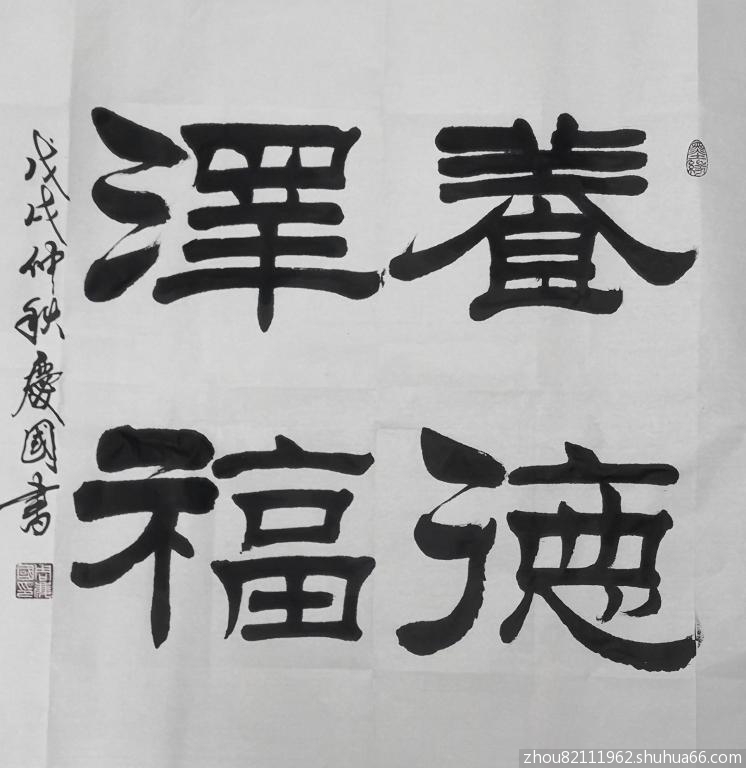 養德
澤福
戊戌仲秋慶國書
zhou82111962.shuhua66.com